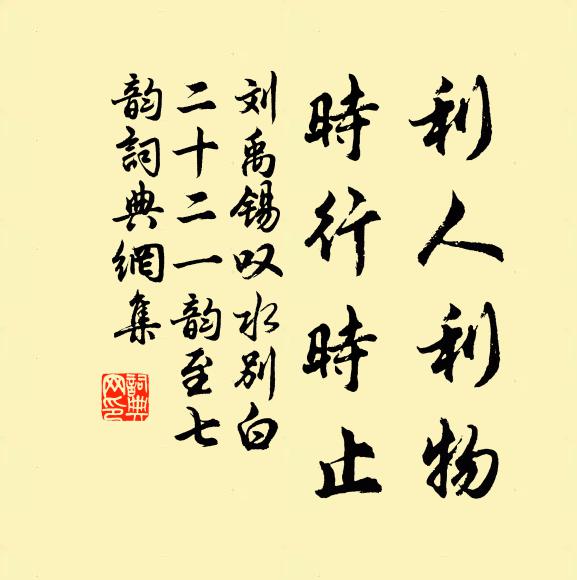 利人利物
時行時止
刘禹锡叹水别白
二十二一韵至七
韵詞典網集
詞典
网印